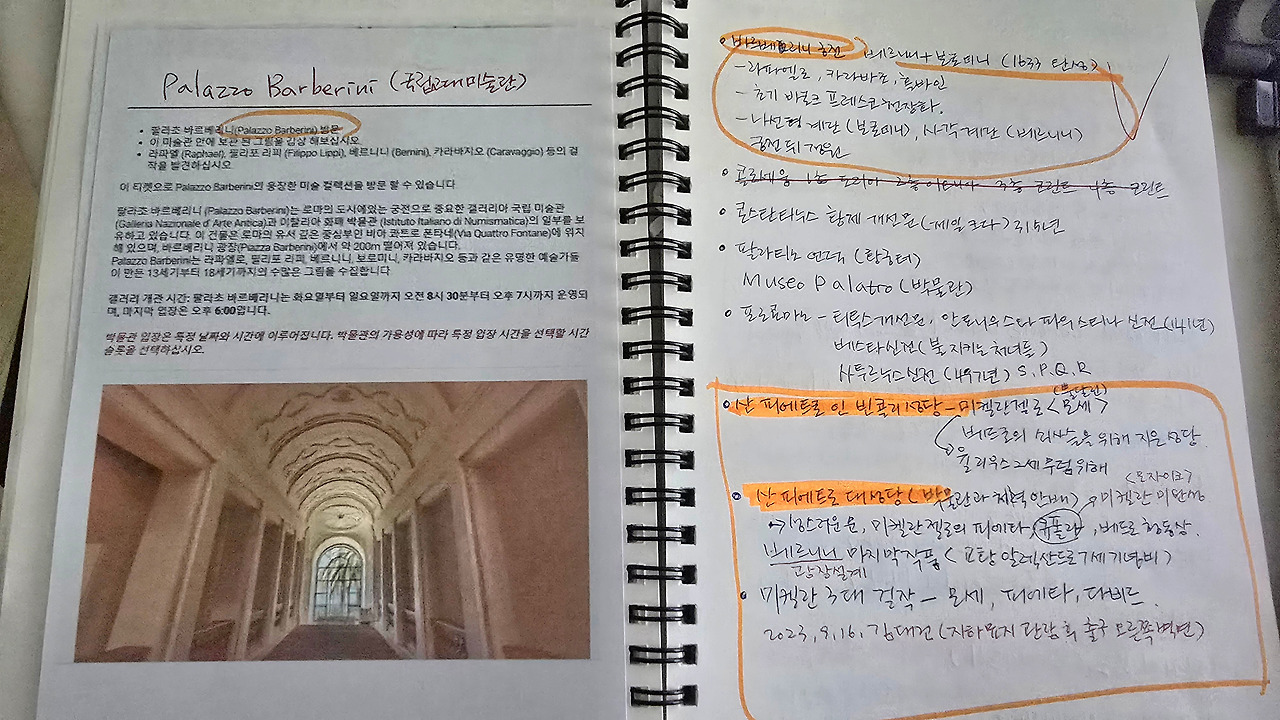 Palazzo Barberini (국립고대미술관)
• 팔라초 바르베리니(Palazzo Barberini) 방문
• 이 미술관 안에 보관 된 그림을 감상 해보십시오
• 라파엘 (Raphael), 필리포 리피 (Filippo Lippi), 베르니니 (Bernini), 카라바지오 (Caravaggio) 등의 걸
작을 발견하십시오
이 티켓으로 Palazzo Barberini의 웅장한 미술 컬렉션을 방문 할 수 있습니다
팔라초 바르베리니 (Palazzo Barberini)는 로마의 도시에있는 궁전으로 중요한 갤러리아 국립 미술관
(Galleria Nazionale d'Arte Antica)과 이탈리아 화폐 박물관 (Istituto Italiano di Numismatica)의 일부를 보
유하고 있습니다. 이 건물은 로마의 유서 깊은 중심부인 비아 콰트로 폰타네(Via Quattro Fontane)에 위치
해 있으며, 바르베리니 광장(Piazza Barberini)에서 약 200m 떨어져 있습니다.
Palazzo Barberini는 라파엘로, 필리포 리피, 베르니니, 보로미니, 카라바지오 등과 같은 유명한 예술가들
이 만든 13세기부터 18세기까지의 수많은 그림을 수집합니다
갤러리 개관 시간: 팔라초 바르베리니는 화요일부터 일요일까지 오전 8시 30분부터 오후 7시까지 운영되
며, 마지막 입장은 오후 6:00합니다.
박물관 입장은 특정 날짜와 시간에 이루어집니다. 박물관의 가용성에 따라 특정 입장 시간을 선택할 시간
슬롯을 선택하십시오.
• 바르베리니 궁전 베르니니+보로미니 (1633 완성)
- 라파엘로, 카라바조, 홀바인
- 초기 바로크 프레스코 천장화.
- 나선형 계단 (보로미니), 사각 계단 (베르니니)
궁전 뒤 정원
• 콜로세움 1층 도리아 2층 이오니아 3층 코린트 4층 코린트
• 콘스탄티누스 황제 개선문 (제일 크다) 315년
• 팔라티노 언덕 (황궁터)
Museo Palatino (박물관)
• 포로로마노 - 티투스 개선문, 안토니우스와 파우스티나 신전 (141년)
베스타신전 (불 지키는 처녀들)
사투르누스신전 (497년) S.P.Q.R
• 산 피에트로 인 빈콜리 성당 - 미켈란젤로 <모세>
베드로의 쇠사슬을 위해 지은 성당.
율리우스 2세 무덤 위해
<모자이크>
• 산 피에트로 대성당 (박물관과 미켈란 완성
미켈란젤로의 피에타, 쿠폴라 베드로 청동상.
베르니니 마지막 작품 (교황 알렉산드르 7세 기념비)
광장설계
• 미켈란 3대 걸작 - 모세, 피에타, 다비드.
2023. 9. 16. 김대건 (지하묘지 관람 후 출구 오른쪽 벽면)